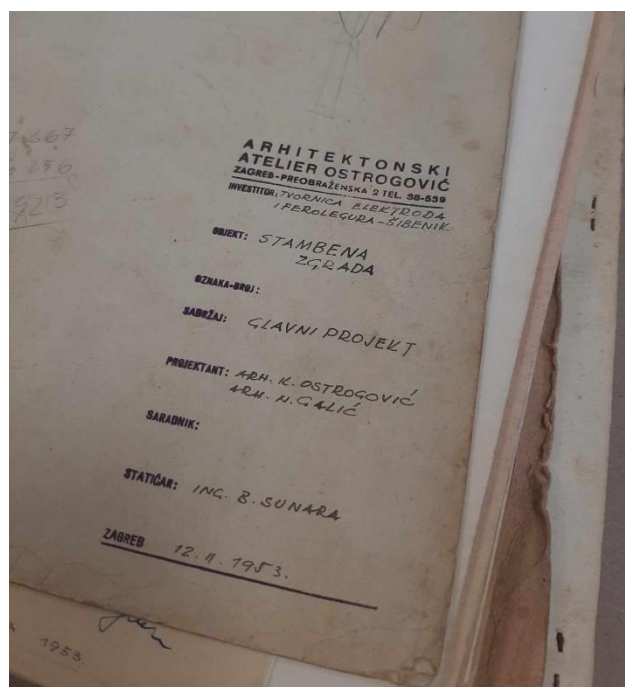 7 667
6 256
923
ARHITEKTONSKI
ATELIER OSTROGOVIĆ
ZAGREB-PREOBRAŽENSKA 2 TEL. 38-539
INVESTITOR: TVORNICA ELEKTRODA
I FEROLEGURA-ŠIBENIK-
OBJEKT: STAMBENA
ZGRADA
OZNAKA-BROJ:
SADRŽAJ: GLAVNI PROJEKT
PROJEKTANT: ARH. K. OSTROGOVIĆ
ARH. N. GALIĆ
SARADNIK:
STATIČAR: ING. B. SUNARA
ZAGREB 12. II. 1953.
1953.